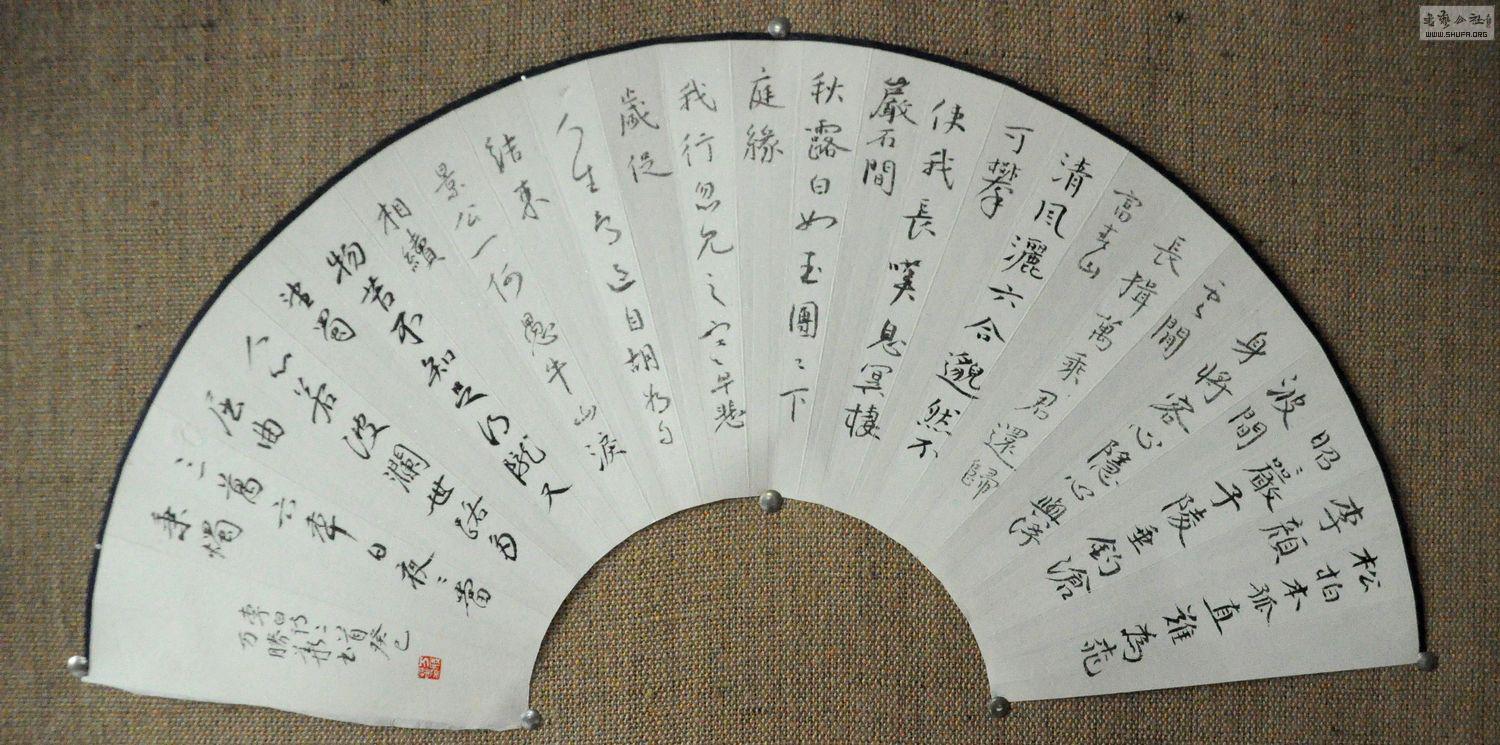 松柏本孤直難為桃
李顏
昭々嚴子陵垂釣滄
波間
身將客心隱心與浮
雲閒
長揖萬乘君還歸
富春山
清風灑六合邈然不
可攀
使我長嘆息冥棲
嚴石間
秋露白如玉團々下
庭緣
我行忽見之寒早悲
歲促
人生鳥過目胡乃自
結束
景公一何愚牛山淚
相續
物苦不知足得隴又
望蜀
人心若波瀾世路有
屈曲
三萬六千日夜々當
秉燭
二首癸巳
書藝公社
WWW.SHUFA.ORG